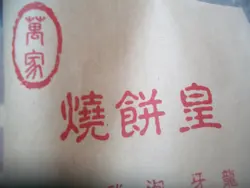 萬家
燒餅皇